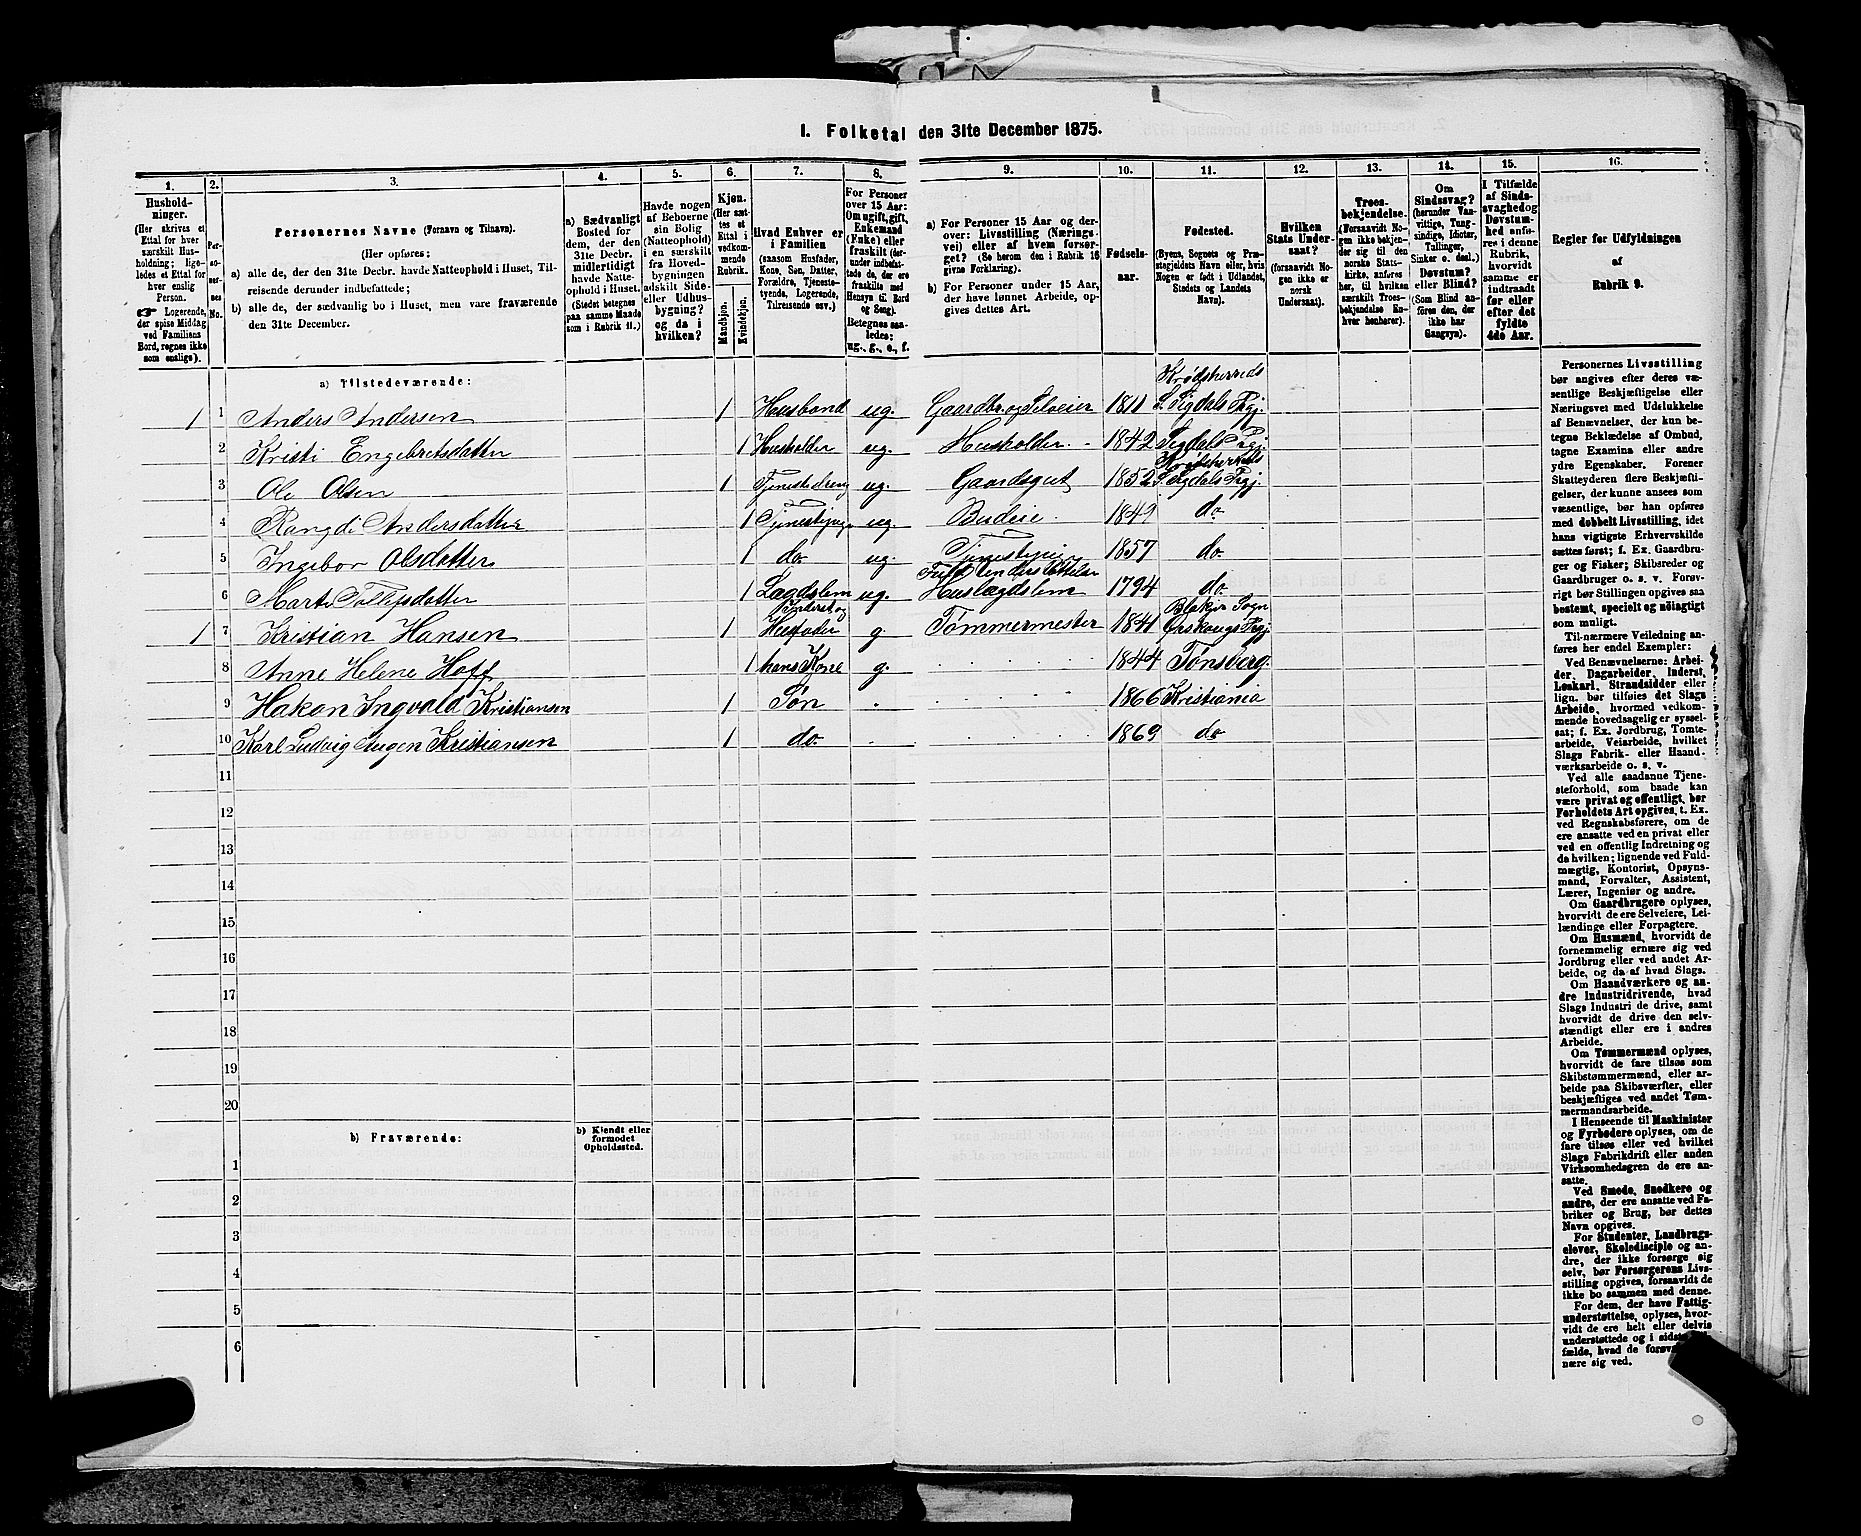 1. Folketal den 31te December 1875.
1. 2. 3. 4. 5. 6. 7. 8. 9. 10. 11. 12. 13. 14. 15. 16.
Hushold-
ninger.
(Her skrives et
Ettal for hver
særskilt Hus-
holdning; lige-
ledes et Ettal for
hver enslig
Person.
Logerende,
der spise Middag
ved Familiens
Bord, regnes ikke
som enslige).
Per-
so-
ner-
nes
No.
Personernes Navne (Fornavn og Tilnavn).
(Her opføres:
a) alle de, der den 31te Decbr. havde Natteophold i Huset, Til-
reisende derunder indbefattede;
b) alle de, der sædvanlig bo i Huset, men vare fraværende
den 31te December.
a) Sædvanligt
Bosted for
dem, der den
31te Decbr.
midlertidigt
havde Natte-
ophold i Huset.
(Stedet betegnes
paa samme Maade
som i Rubrik 11.)
Havde nogen
af Beboerne
sin Bolig
(Natteophold)
i en særskilt
fra Hoved-
bygningen
adskilt Side-
eller Udhus-
bygning?
og da i
hvilken?
Kjøn.
(Her sæt-
tes et
Ettal i
vedkom-
mende
Rubrik.
Mandkjøn.
Kvindekjøn.
Hvad Enhver er
i Familien
(saasom Husfader,
Kone, Søn, Datter,
Forældre, Tjeneste-
tyende, Logerende,
Tilreisende osv.)
For Personer
over 15 Aar:
Om ugift, gift,
Enkemand
(Enke) eller
fraskilt (der-
under indbefat-
tede de, der ere
fraskilte med
Hensyn til Bord
og Seng).
Betegnes saa-
ledes:
ug., g., e., f.
a) For Personer 15 Aar og der-
over: Livsstilling (Nærings-
vei) eller af hvem forsør-
get? (Se herom den i Rubrik 16
givne Forklaring).
b) For Personer under 15 Aar,
der have lønnet Arbeide, op-
gives dettes Art.
Fødsels-
aar.
Fødested.
(Byens, Sognets og Præ-
stegjeldets Navn eller, hvis
Nogen er født i Udlandet,
Stedets og Landets
Navn).
Hvilken
Stats Under-
saat?
(forsaavidt No-
gen ikke er
norsk
Undersaat).
Troes-
bekjendelse.
(Forsaavidt No-
gen ikke bekjen-
der sig til den
norske Stats-
kirke, anføres
her, til hvilken
særskilt Troes-
bekjendelse En-
hver henhører).
Om
Sindssvag?
(herunder Van-
vittige, Tung-
sindige, Idioter,
Tullinger,
Sinker o. desl.)
Døvstum?
eller Blind?
(Som Blind an-
føres den, der
ikke har
Gangsyn).
I Tilfælde
af Sinds-
svaghed og
Døvstum-
hed anfø-
res i denne
Rubrik,
hvorvidt
samme er
indtraadt
før eller
efter det
fyldte
4de Aar.
Regler for Udfyldningen
af
Rubrik 9.
a) Tilstedeværende:
Krødsherreds
1 1 Anders Andersen 1 Husbond ug. Gaardbr. og Selveier 1811 S. Sigdals Prgj.
2 Kristi Engebretsdatter 1 Husholder ug. Husholder 1842 Sigdals Prgj.
Krødsherreds
3 Ole Olsen 1 Tjenestedreng ug. Gaardsgut 1852 S. Sigdals Prgj.
4 Rangdi Andersdatter 1 Tjenestepige ug. Budeie 1849 do.
5 Ingebor Olsdatter 1 do. ug. Tjenestepige 1857 do.
6 Marte Tollefsdatter 1 Lægdslem ug. Huslægdslem 1794 do.
Inderst og Blakjer Sogn
1 7 Kristian Hansen 1 Husfader g. Tømmermester 1841 Urskougs Prgj.
8 Anne Helene Hoff 1 hans Kone g. 1844 Tønsberg.
9 Hakon Ingvald Kristiansen 1 Søn 1866 Kristiania
10 Karl Ludvig Augen Kristiansen 1 do. 1869 do
11
12
13
14
15
16
17
18
19
20
b) Fraværende:
b) Kjendt eller
formodet
Opholdssted.
1
2
3
4
5
6
Personernes Livsstilling
bør angives efter deres væ-
sentlige Beskjæftigelse eller
Næringsvei med Udelukkelse
af Benævnelser, der kun be-
tegne Beklædelse af Ombud,
tagne Examina eller andre
ydre Egenskaber. Forener
Skatteyderen flere Beskjæfti-
gelser, der kunne ansees som
væsentlige, bør han opføres
med dobbelt Livsstilling, idet
hans vigtigste Erhvervskilde
sættes først; f. Ex. Gaardbru-
ger og Fisker; Skibsreder og
Gaardbruger o. s. v. Forøv-
rigt bør Stillingen opgives saa
bestemt, specielt og nöiagtigt
som muligt.
Til nærmere Veiledning an-
føres her endel Exempler:
Ved Benævnelserne: Arbei-
der, Dagarbeider, Inderst,
Løskarl, Strandsidder eller
lign. bør tilføies det Slags
Arbeide, hvormed vedkom-
mende hovedsagelig er syssel-
sat; f. Ex. Jordbrug, Tomte-
arbeide, Veiarbeide, hvilket
Slags Fabrik- eller Haand-
værksarbeide o. s. v.
Ved alle saadanne Tjene-
steforhold, som baade kan
være privat og offentligt, bør
Forholdets Art opgives, t. Ex.
ved Regnskabsførere, om de
ere ansatte ved en privat eller
ved en offentlig Indretning og
da hvilken; lignende ved Fuld-
mægtig, Kontorist, Opsyns-
mand, Forvalter, Assistent,
Lærer, Ingeniør og andre.
Om Gaardbrugere oplyses,
hvorvidt de ere Selveiere, Lei-
lændinge eller Forpagtere.
Om Husmænd, hvorvidt de
fornemmelig ernære sig ved
Jordbrug eller ved andet Ar-
beide, og da af hvad Slags.
Om Haandværkere og an-
dre Industridrivende, hvad
Slags Industri de drive, samt
hvorvidt de drive den selv-
stændigt eller ere i andres
Arbeide.
Om Tømmermænd oplyses,
hvorvidt de fare tilsøs som
Skibstømmermænd, eller ar-
beide paa Skibsværfter, eller
beskjæftiges ved andet Tøm-
mermandsarbeide.
I Henseende til Maskinister
og Fyrbødere oplyses, om de
fare tilsøs eller ved hvilket
Slags Fabrikdrift eller anden
Virksomhedsgren de ere an-
satte.
Ved Smede, Snedkere og
andre, der ere ansatte ved Fa-
briker og Brug, bør dettes
Navn opgives.
For Studenter, Landbrugs-
elever, Skoledisciple og an-
dre, der ikke forsørge sig
selv, bør Forsørgerens Livs-
stilling opgives, forsaavidt de
ikke bo sammen med denne.
For dem, der have Fattig-
understøttelse, oplyses, hvor-
vidt de ere helt eller delvis
understøttede og i sidste
fælde, hvad de
nære sig ved.